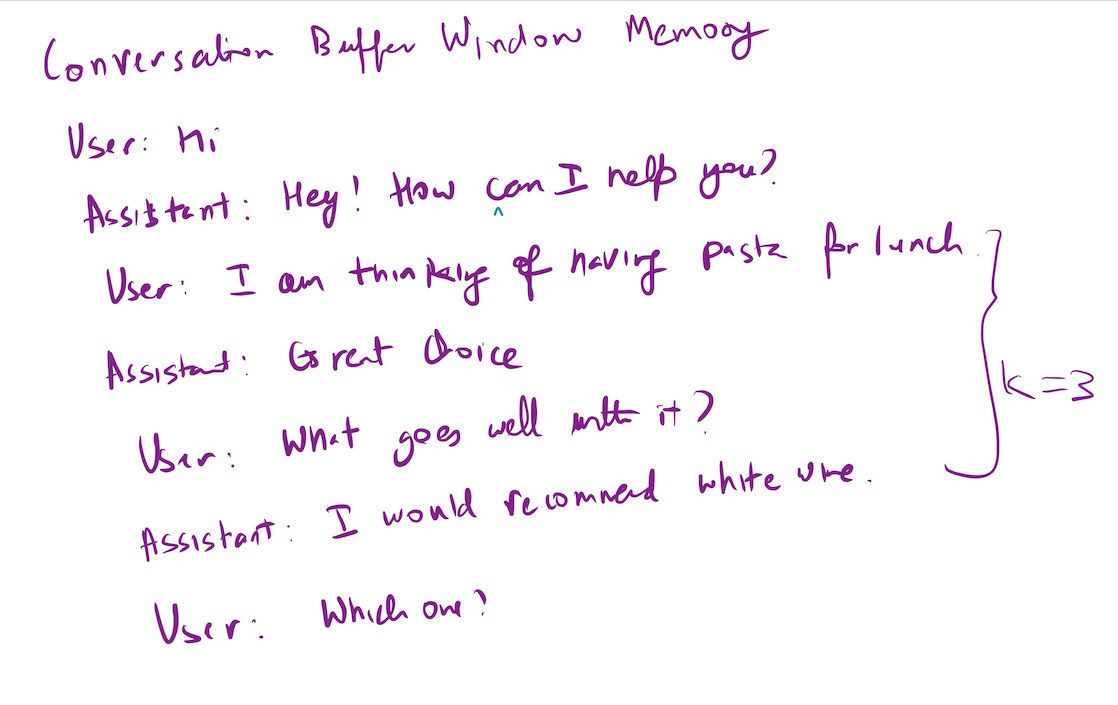 Conversation Buffer Window Memory
User: Hi
Assistant: Hey! How can I help you?
User: I am thinking of having pasta for lunch.
Assistant: Great Choice
User: What goes well with it?
Assistant: I would recommend white wine.
User: Which one?
K=3